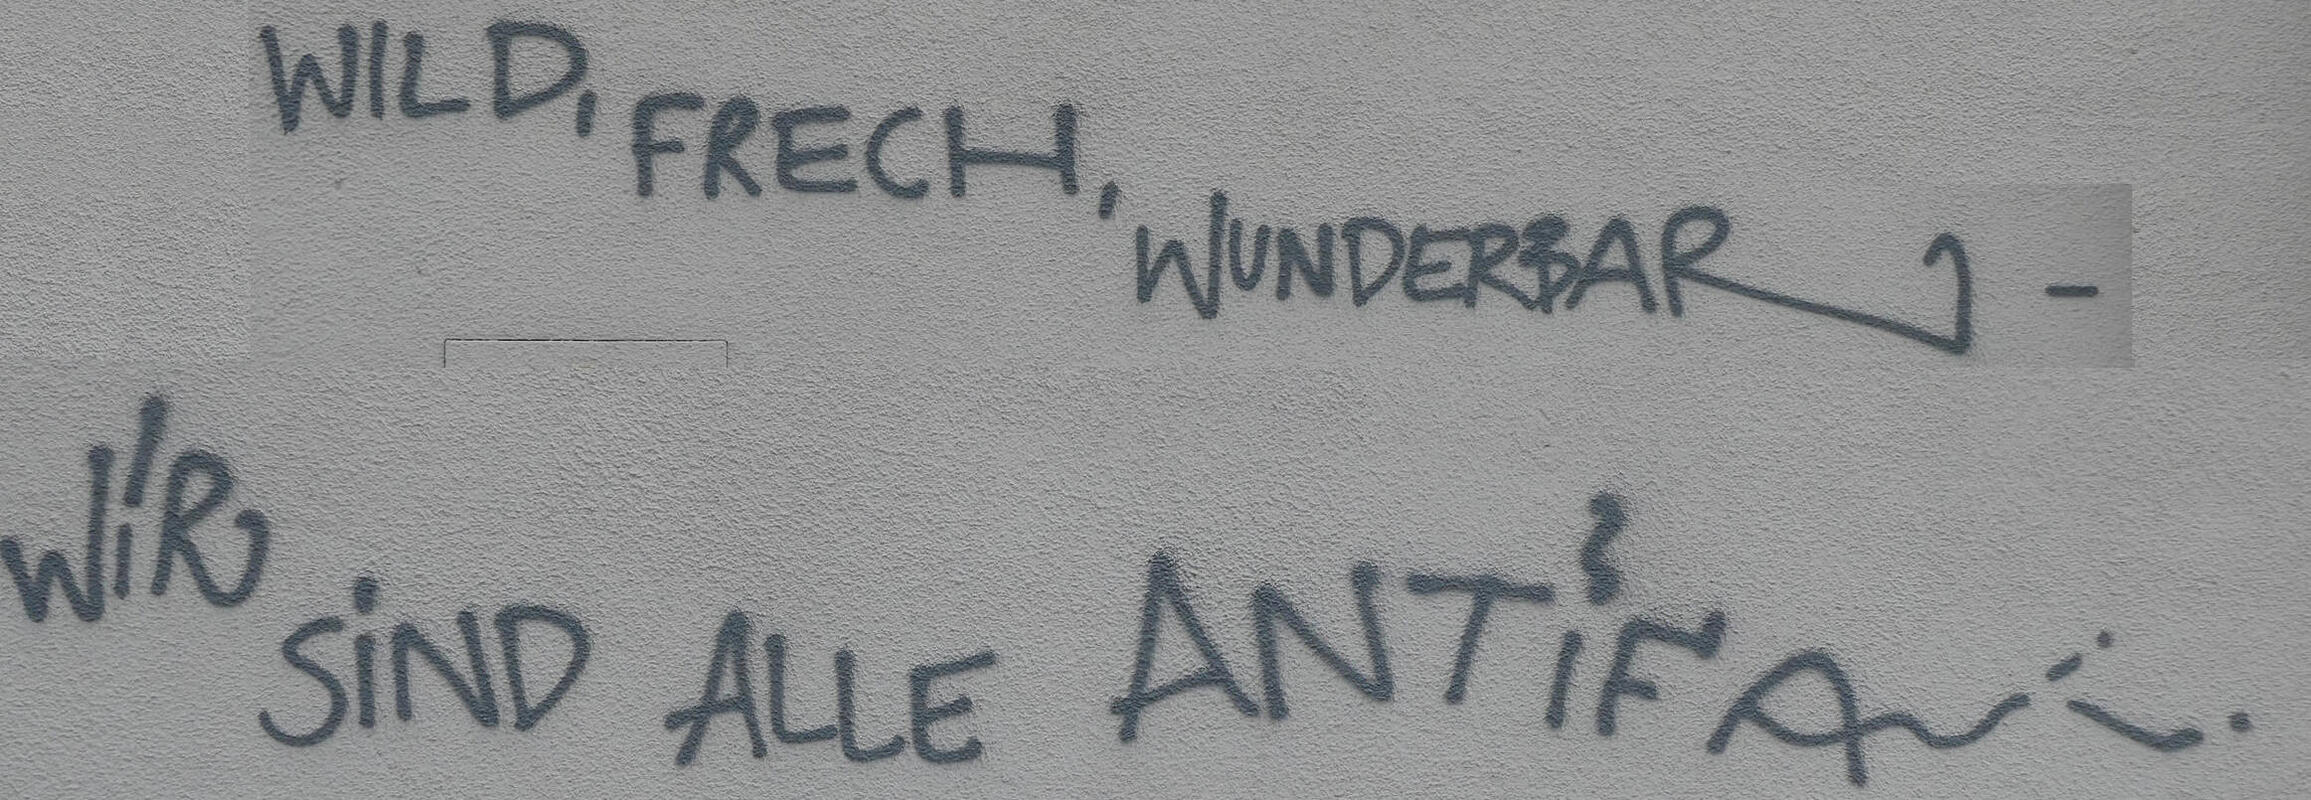 WILD, FRECH, WUNDERBAR -
WiR SiND ALLE ANTiFA